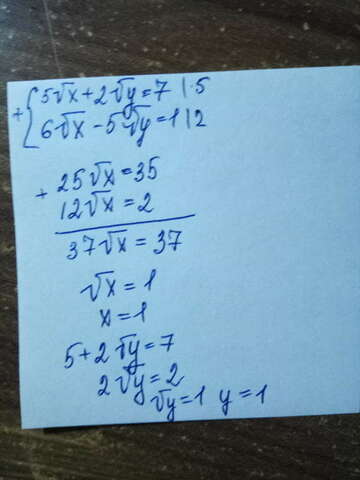 + { 5√x + 2√y = 7 | · 5
6√x - 5√y = 1 | 2
+ 25√x = 35
12√x = 2
37√x = 37
√x = 1
x = 1
5 + 2√y = 7
2√y = 2
√y = 1 y = 1